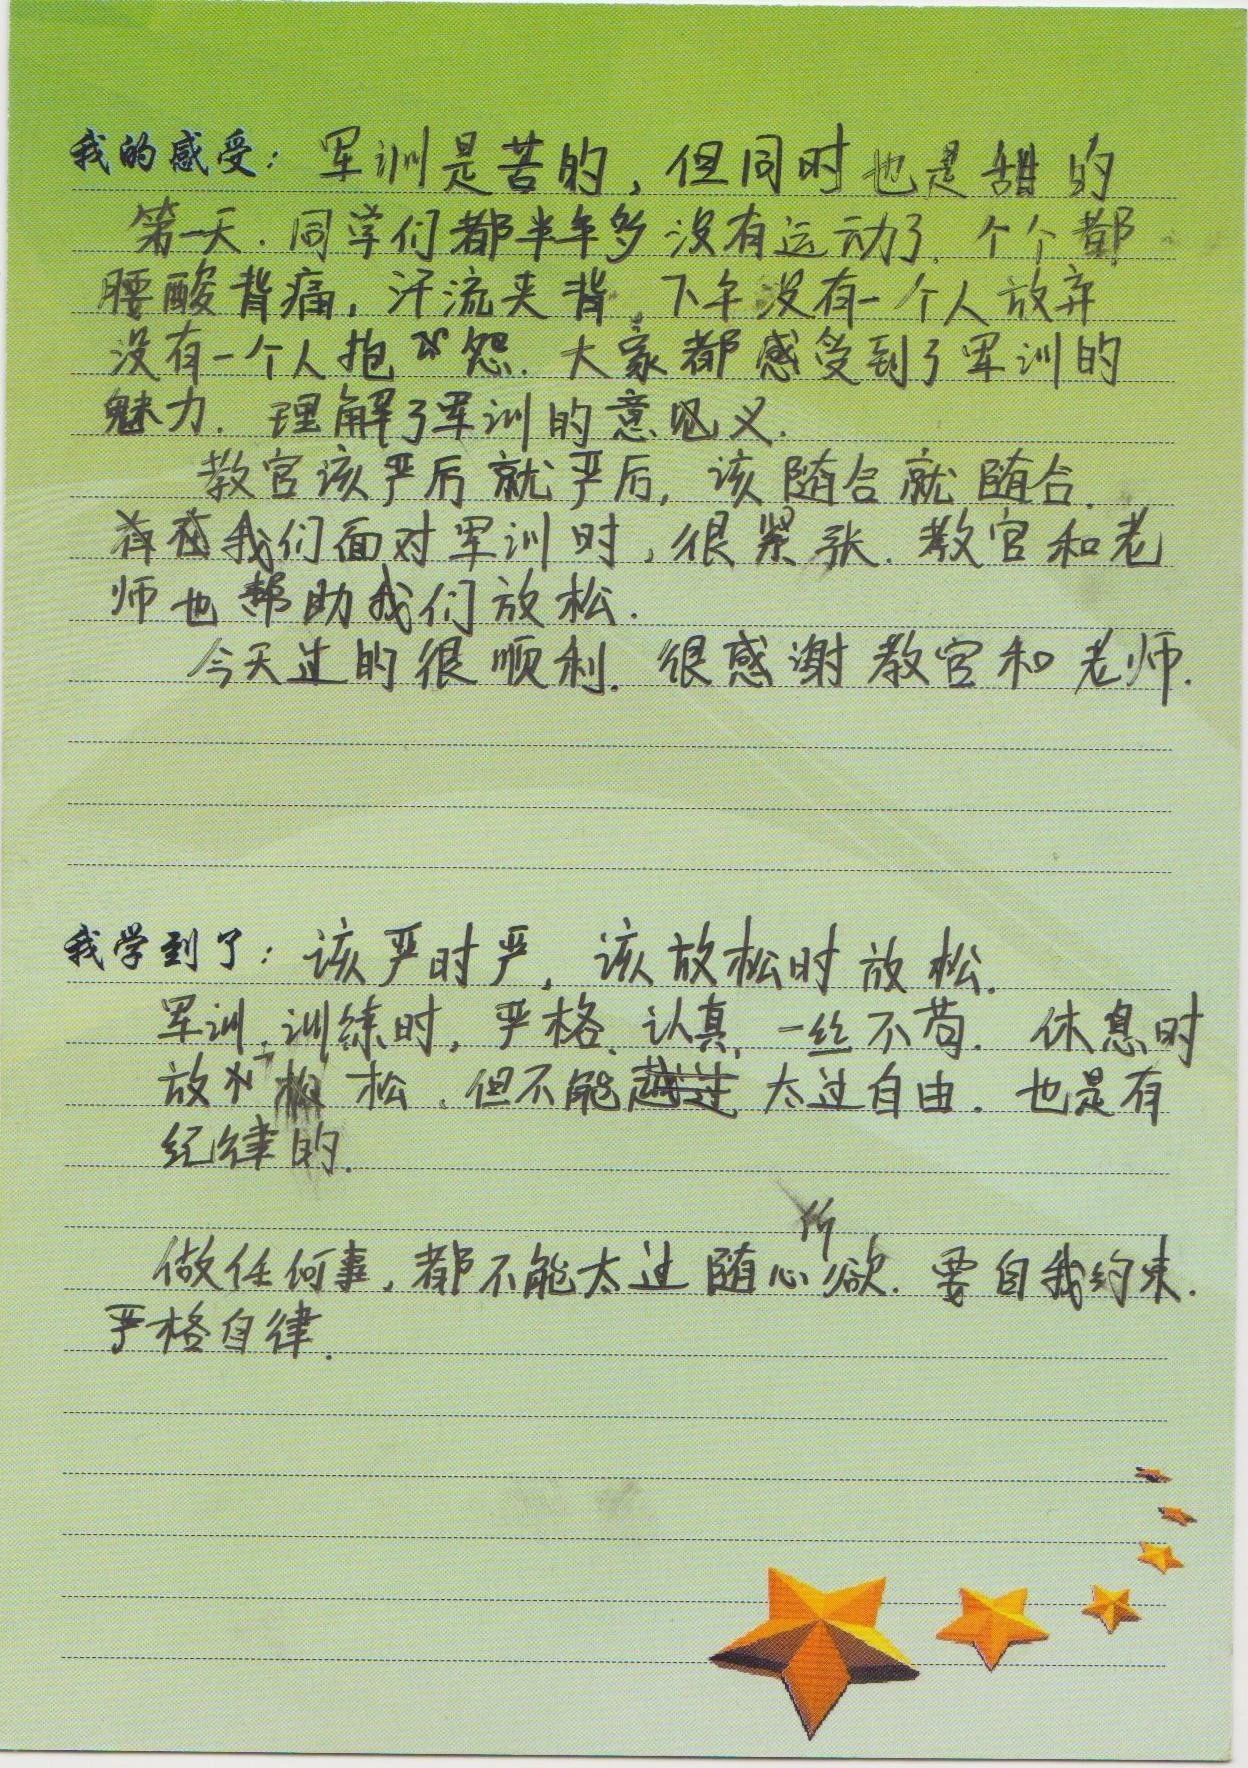 我的感受：军训是苦的，但同时也是甜的
第一天.同学们都半年多没有运动了.个个都
腰酸背痛，汗流夹背.下午没有一个人放弃
没有一个人抱怨.大家都感受到了军训的
魅力.理解了军训的意义.
教官该严厉就严厉，该随合就随合.
在我们面对军训时，很紧张.教官和老
师也帮助我们放松.
今天过的很顺利.很感谢教官和老师.
我学到了：该严时严，该放松时放松.
军训.训练时，严格、认真、一丝不苟.休息时
放松.但不能太过自由.也是有
纪律的.
做任何事，都不能太过随心所欲.要自我约束.
严格自律.